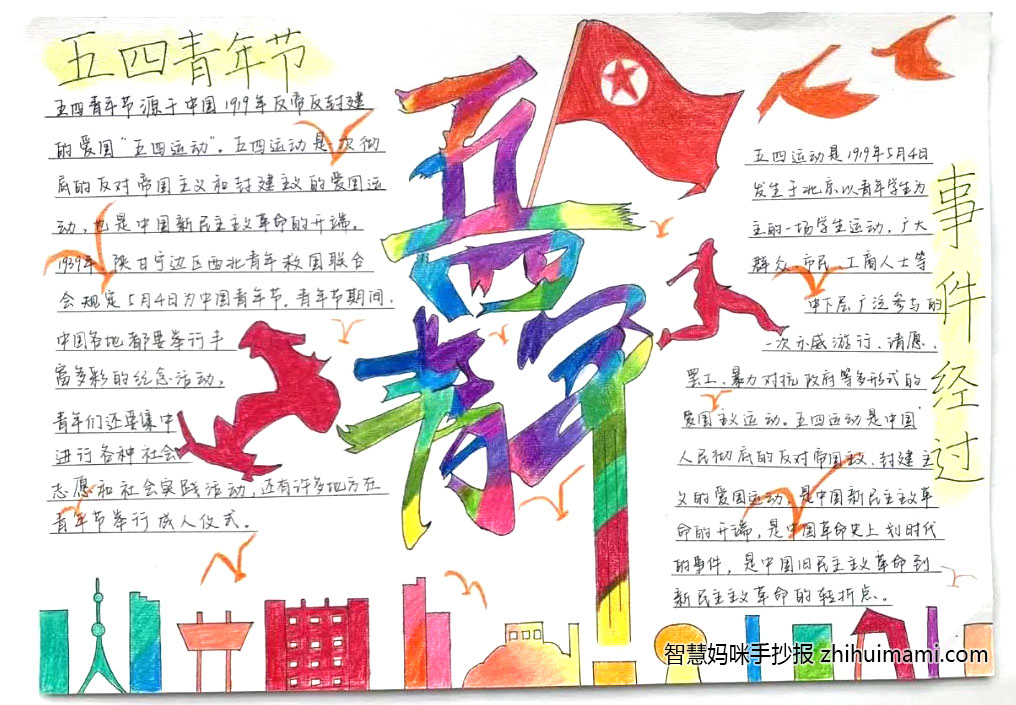 五四青年节
五四青年节源于中国1919年反帝反封建
的爱国"五四运动"。五四运动是一次彻
底的反对帝国主义和封建主义的爱国运
动，也是中国新民主主义革命的开端。
1939年，陕甘宁边区西北青年救国联合
会规定5月4日为中国青年节，青年节期间，
中国各地都要举行丰
富多彩的纪念活动，
青年们还要集中
进行各种社会
志愿和社会实践活动，还有许多地方在
青年节举行成人仪式。
五四青年
事件经过
五四运动是1919年5月4日
发生于北京以青年学生为
主的一场学生运动，广大
群众、市民、工商人士等
中下层广泛参与的
一次示威游行、请愿、
罢工、暴力对抗政府等多形式的
爱国主义运动。五四运动是中国
人民彻底的反对帝国主义、封建主
义的爱国运动，是中国新民主主义革
命的开端，是中国革命史上划时代
的事件，是中国旧民主主义革命到
新民主主义革命的转折点。
智慧妈咪手抄报 zhihuimami.com